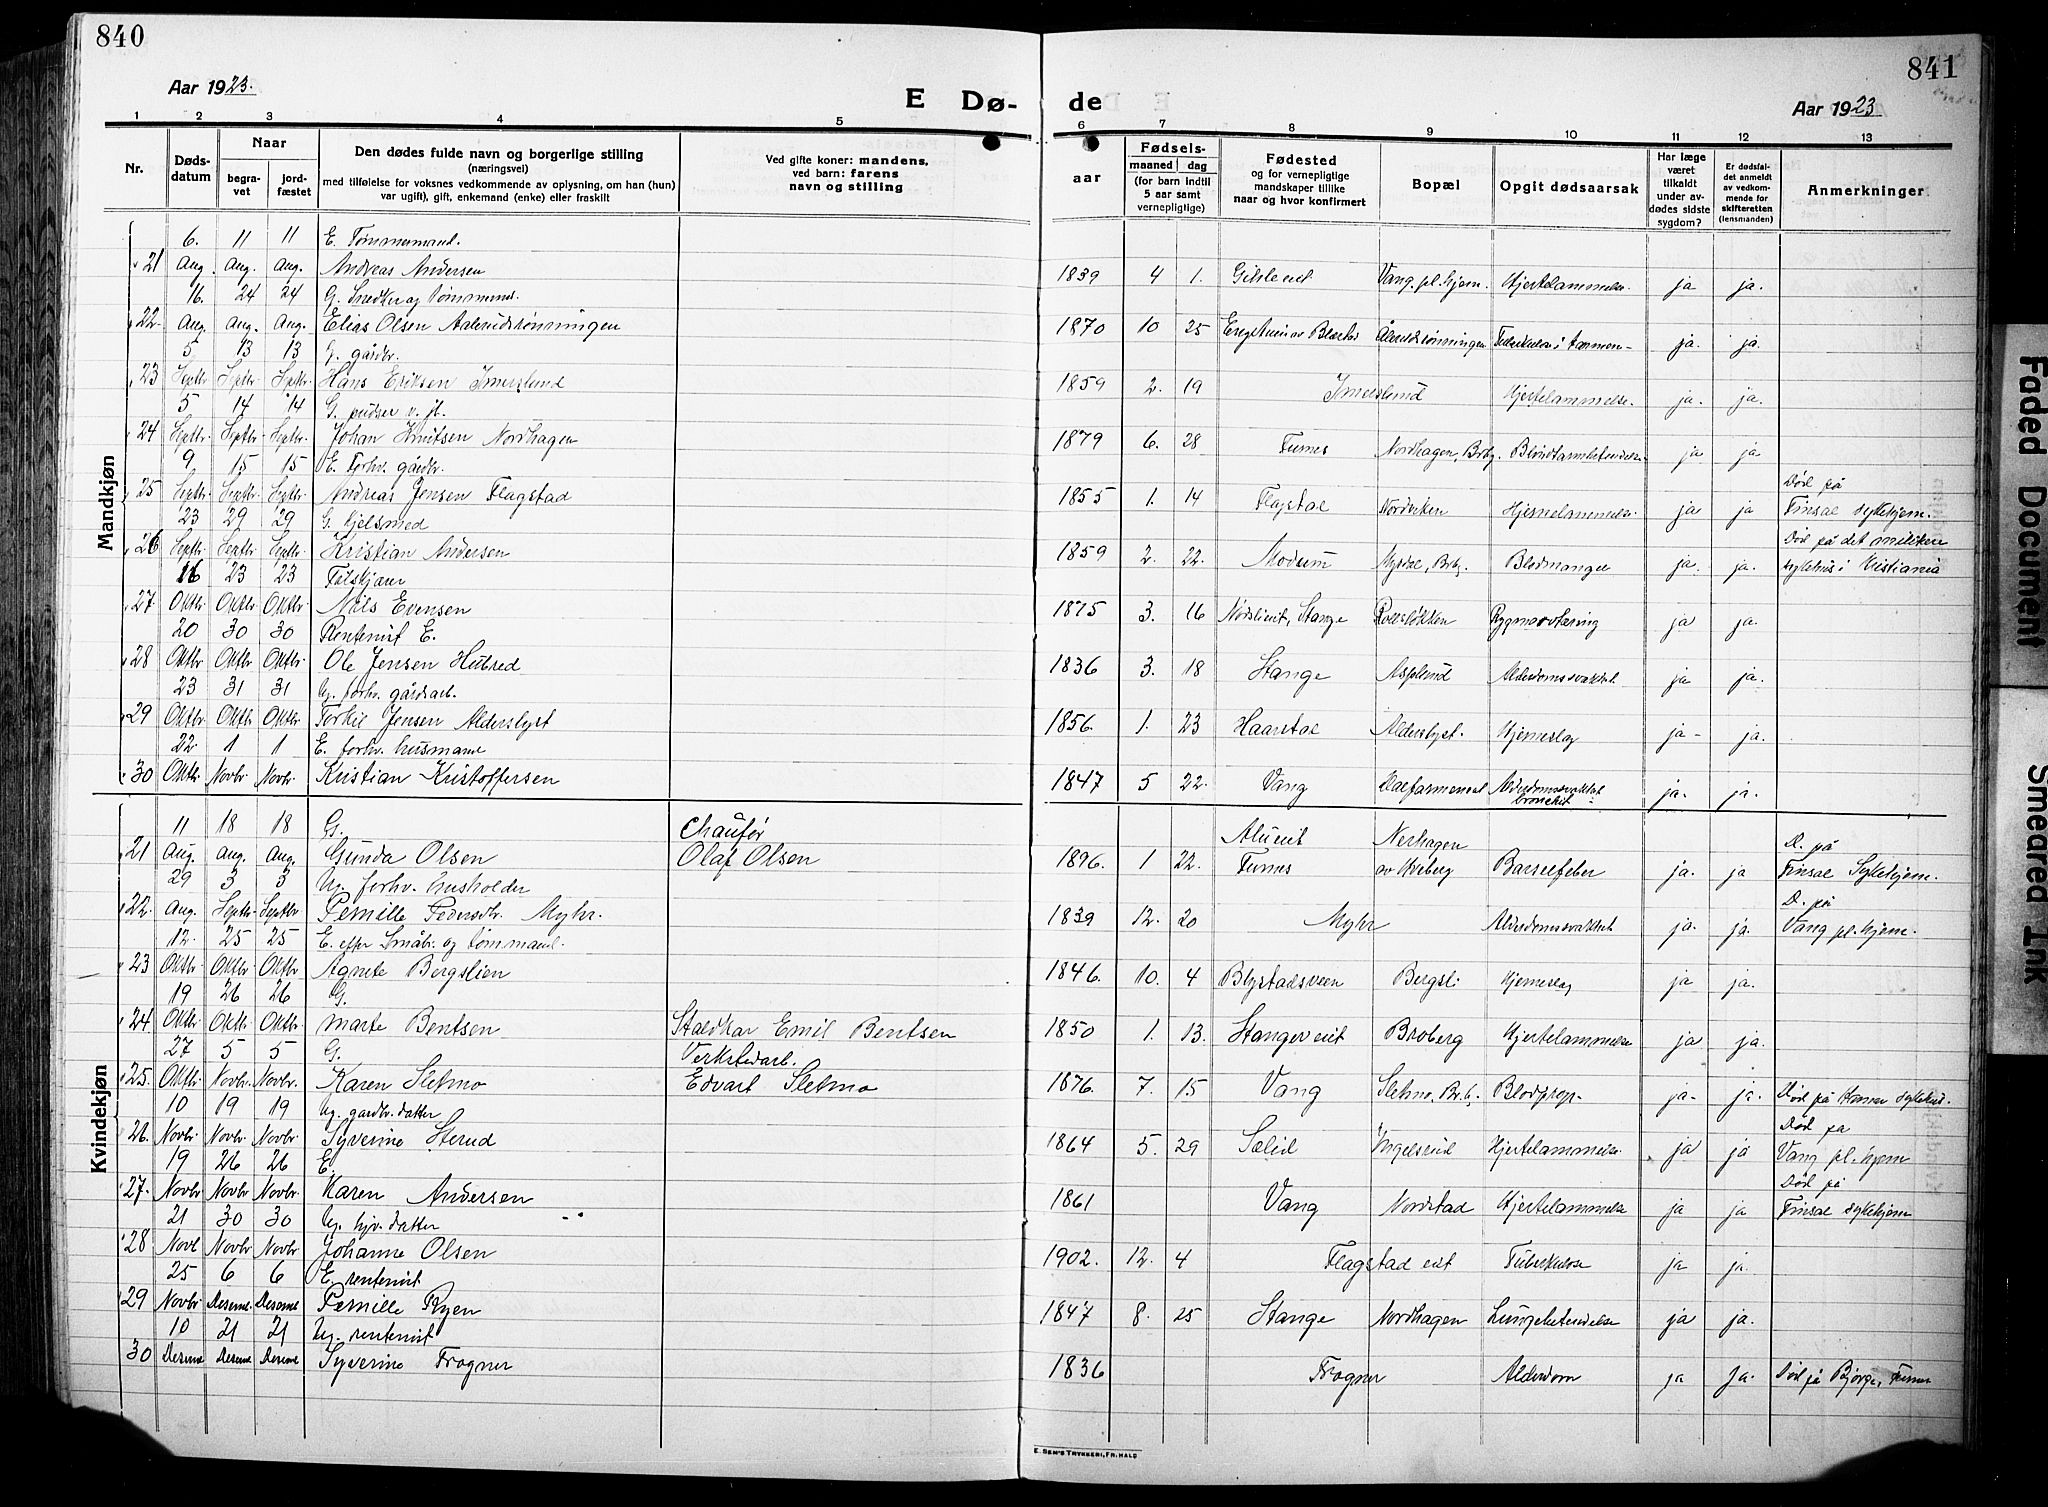 840
841
Aar 1923.
E Dø-
de
Aar 1923
1 2 3 4 5 6 7 8 9 10 11 12 13
Nr.
Døds-
datum
Naar
begra-
vet
jord-
fæstet
Den dødes fulde navn og borgerlige stilling
(næringsvei)
med tilføielse for voksnes vedkommende av oplysning, om han (hun)
var ugift), gift, enkemand (enke) eller fraskilt
Ved gifte koner: mandens,
ved barn: farens
navn og stilling
aar
Fødsels-
maaned dag
(for barn indtil
5 aar samt
vernepligtige)
Fødested
og for vernepligtige
mandskaper tillike
naar og hvor konfirmert
Bopæl
Opgit dødsaarsak
Har læge
været
tilkaldt
under av-
dødes sidste
sygdom?
Er dødsfal-
det anmeldt
av vedkom-
mende for
skifteretten
(lensmanden)
Anmerkninger
Mandkjøn
6. 11 11 E. Tømmermand.
21 Aug. Aug. Aug. Andreas Andersen 1839 4 1. Vang. pl. hjem. Hjertelammelse. ja ja.
16. 24 24 G. Snedker og tømmerm.
22. Aug. Aug. Aug. Elias Olsen Aalerudsrønningen 1870 10 25 Ålerudsrønningen ja. ja.
5 13 13 G. gårdbr.
23 Septbr. Septbr. Septbr. Hans Eriksen Imerslund 1859 2. 19 Imerslund Hjertelammelse. ja. ja.
5 14 14 G. pudser v. jb.
24 Septbr. Septbr. Septbr. Johan Knutsen Nordhagen 1879 6. 28 Furnes Nordhagen, Brbg. Blindtarmbetændelse ja ja
9 15 15 E. Forhv. gårdbr.
25 Septbr. Septbr. Septbr. Andreas Jensen Flagstad 1855 1. 14 Flagstad Hjernelammelse ja ja Død på
Finsal sykehjem.
23 29 29 G. Hjulsmed
26 Septbr. Septbr. Septbr. Kristian Andersen 1859 2. 22. Modum Myrdal, Brbg. Blodmangel ja. ja. Død på det militære
sykehus i Kristiania
16 23 23 Feltskjær
27. Oktbr Oktbr. Oktbr. Nils Evensen 1875 3. 16 Nørslieit, Stange Rolsløkken Rygmarvtæring ja ja.
20 30 30 Rentenist E.
28 Oktbr Oktbr. Oktbr. Ole Jensen Hubred 1836 3. 18 Stange Asplund Alderdomssvakhet ja ja.
23 31 31 Ug. forhv. gårdsarb.
29 Oktbr. Oktbr. Oktbr Torkil Jensen Alderslyst 1856. 1. 23 Haarstad Alderslyst. Hjerneslag ja- ja.
22. 1 1 E. forhv. husmand
30 Oktbr. Novbr. Novbr. Kristian Kristoffersen 1847 5 22. Vang Alderdomssvakhet
bronchit ja. ja.
Kvindekjøn
11 18 18 G. Chaufør
21 Aug. Aug. Aug. Gunda Olsen Olaf Olsen 1896. 1 22. Alueit
Furnes Nerhagen
av Hveberg Barselfeber ja. ja D. på
Finsal Sykehjem.
29 3 3 Ug. forhv. husholder
22. Aug. Septbr. Septbr Pernille Pedersdtr. Myhr. 1839 12. 20 Myhr Alderdomssvakhet ja. ja. D. på
Vang pl. hjem.
12. 25 25 E. efter Småbr. og tømmermd.
23 Oktbr. Oktbr Oktbr Agnete Bergslien 1846. 10. 4 Blystadsveen Bergsli Hjerneslag ja ja.
19 26 26 G.
24 Oktbr. Oktbr. Oktbr. Marte Bentsen Staldkar Emil Bentsen 1850 1. 13. Stangeveit Broberg Hjertelammelse ja ja.
27 5 5 G. Verkstedarb.
25. Oktbr. Novbr. Novbr. Karen Sletmo Edvart Sletmo 1876. 7. 15 Vang Sletmo, Brbg. Blodprop. ja- ja. Død på Hamar sykehus.
10 19 19 Ug. gardbr. datter
26. Novbr. Novbr. Novbr. Syverine Sterud 1864 5. 29 Sælid Ingelsrud Hjertelammelse. ja ja Død på
Vang pl. hjem
19 26 26 E.
27. Novbr. Novbr. Novbr. Karen Andersen 1861 Vang Nordstad Hjertelammelse ja ja Død på
Finsal sykehjem
21 30 30 Ug. hjv. datter
28 Novb Novbr. Novbr. Johanne Olsen 1902. 12. 4 Flagstad eit Tuberkulose ja ja.
25 6 6 E. rentenist
29 Novbr. Desemb. Desemb Pernille Ryen 1847 8. 25 Stange Nordhagen Lungebetendelse ja ja.
10 21 21 Ug. rentenist
30 Desemb Desemb Desemb Syverine Frogner 1836 Frogner Alderdom ja ja. Død på Bjørge, Furnes
E. SEM'S TRYKKERI, FR.HALD
Faded Document
Smeared Ink